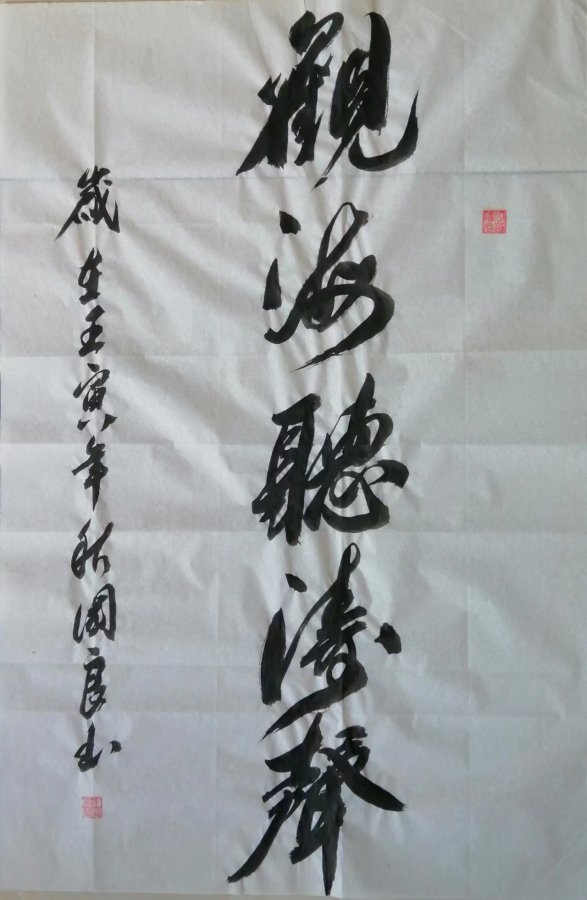 觀海聽濤聲
歲在壬寅年秋國良書